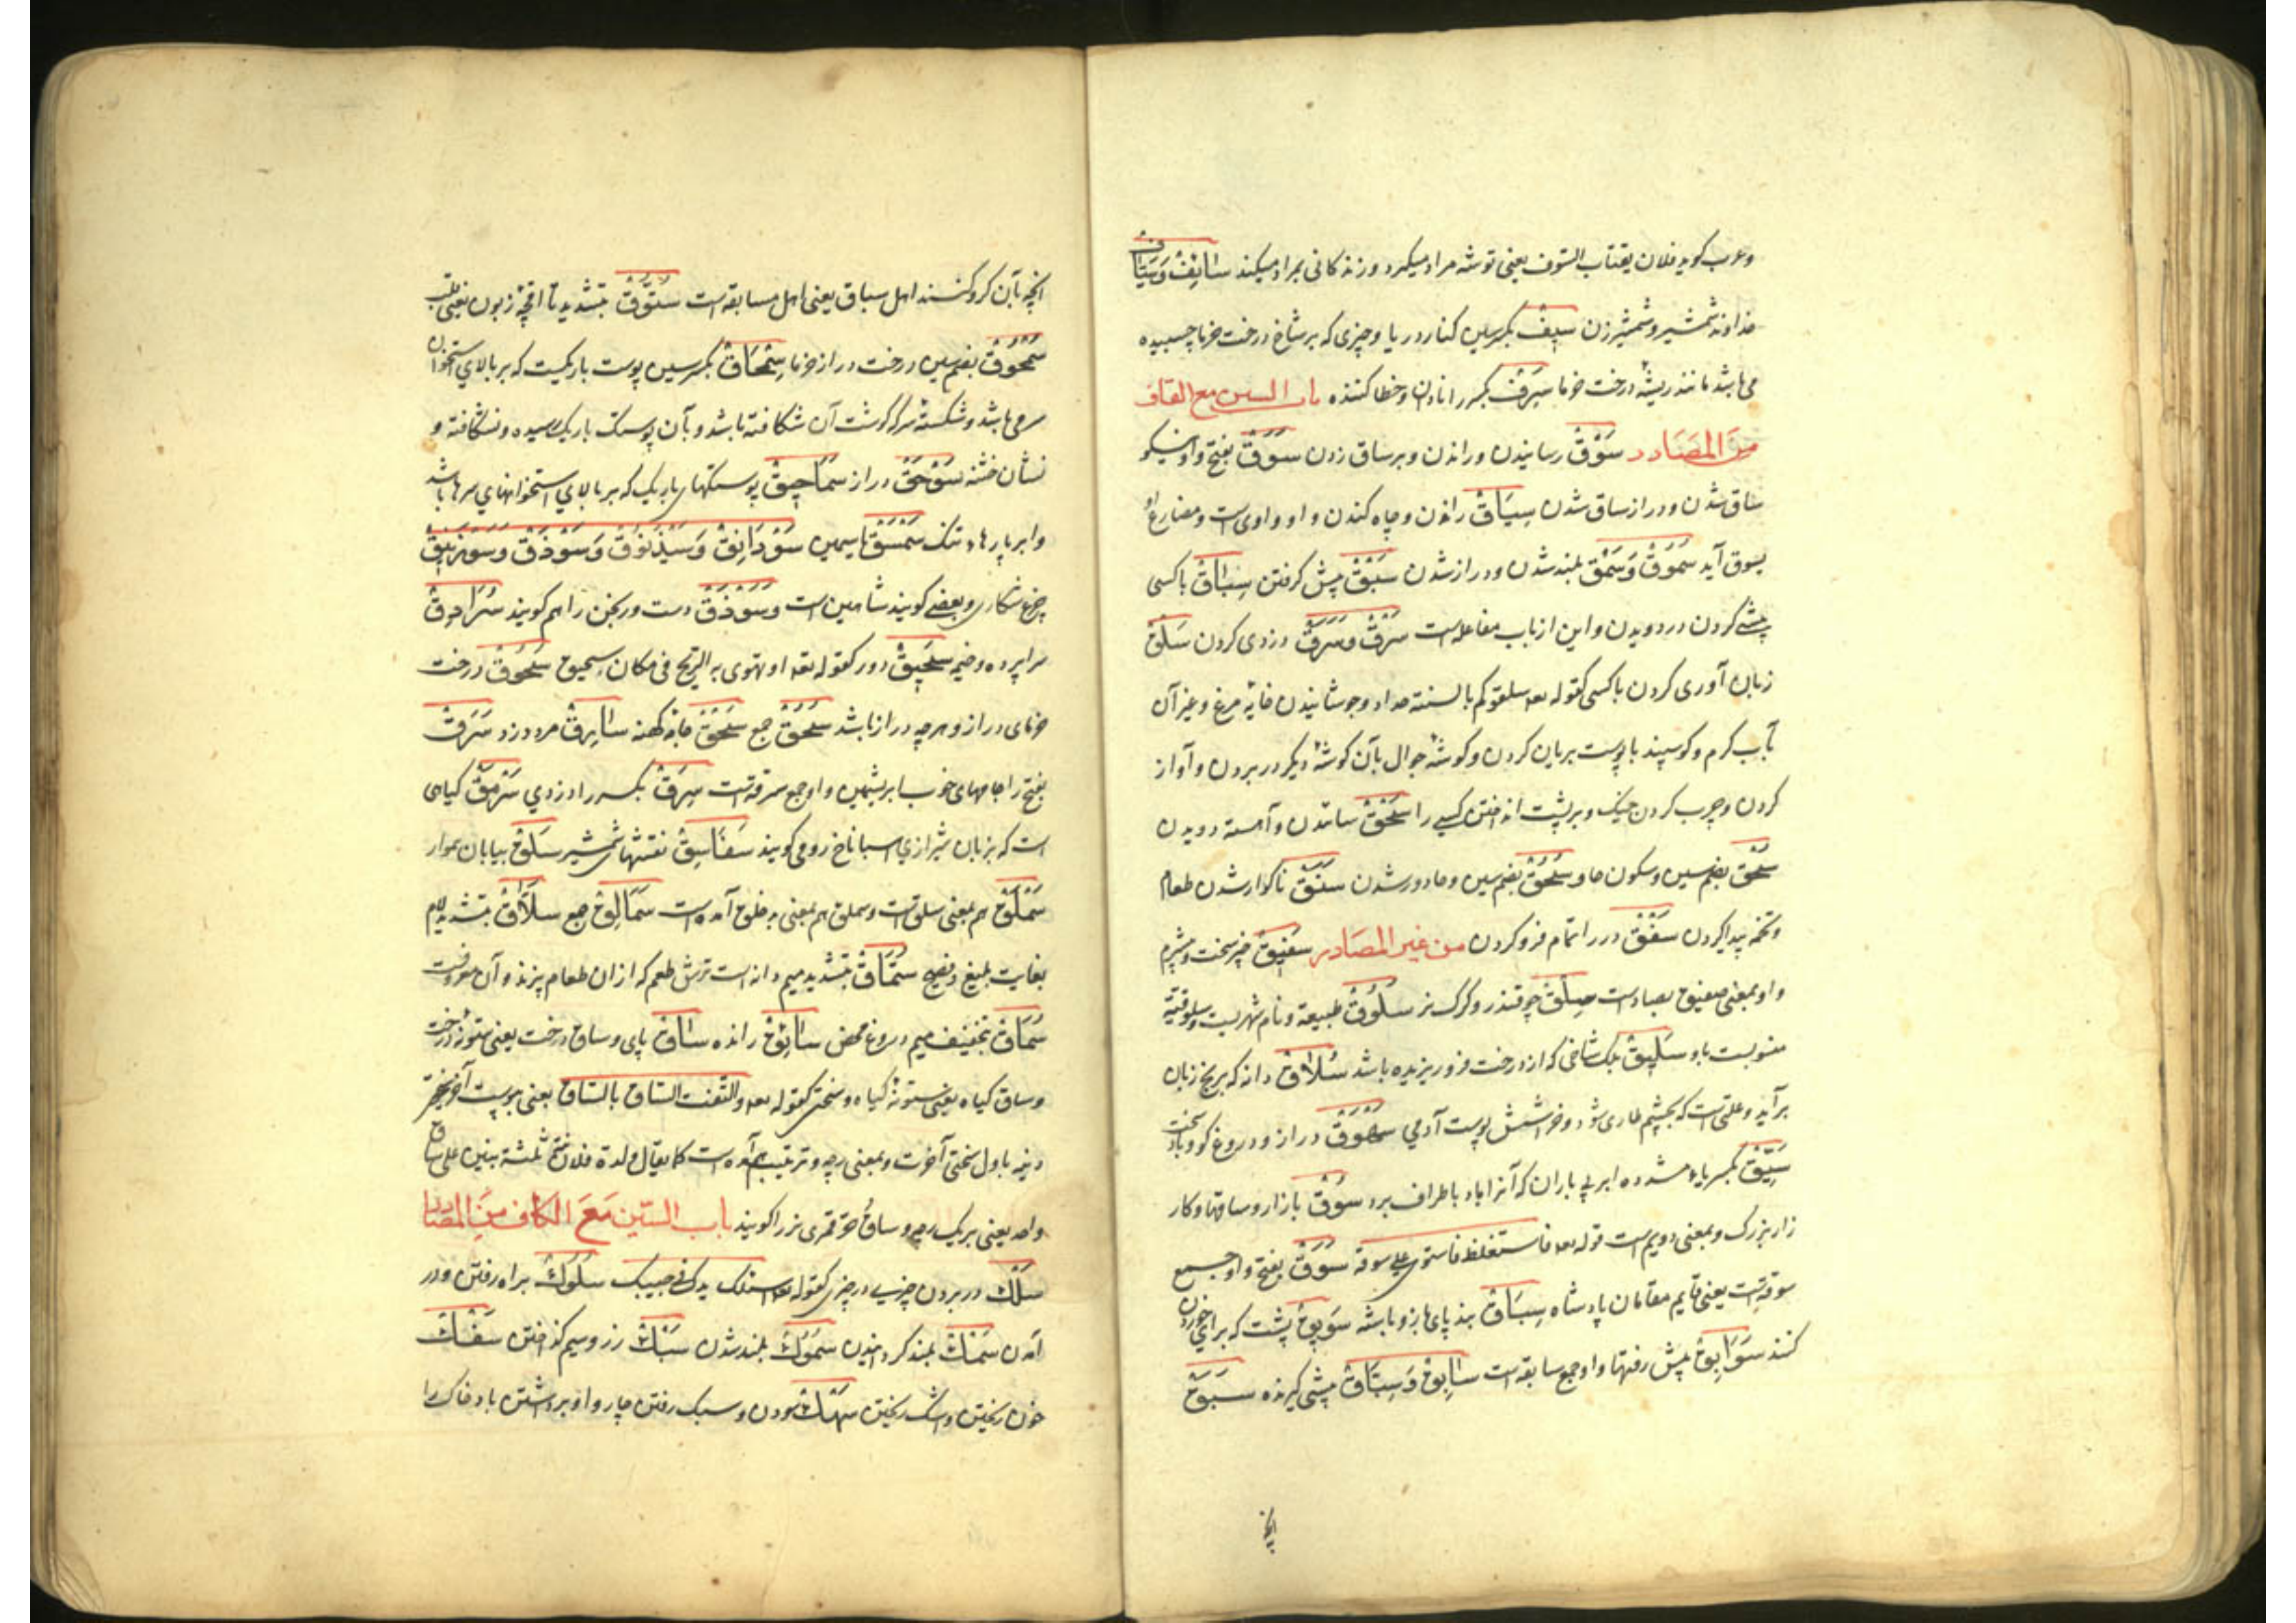 وعرب گوید فلان یقتات السوف یعنی توشه مراد میگیرد و زندگانی بمراد میکند سَائِفْ وَسَیَّاف
خداوند شمشیر و شمشیرزن سِیفْ بکسر سین کنار دریا و چیزی که بر شاخ درخت خرما چسبیده
می باشد مانند ریشه درخت خرما سَرِفْ بکسر را نادان و خطا کننده باب السین مع القاف
مِنَ المَصَادر سَوْقْ رسانیدن و راندن و بر ساق زدن سَوَقْ بفتح واو نیکو
ساق شدن و دراز ساق شدن سِیَاقْ راندن و جاه کندن و او واوی است و مضارع او
یسوق آید سُمُوقْ وَسَمْق بلند شدن و دراز شدن سَبْقْ پیش گرفتن سِبَاقْ با کسی
پیشی کردن در دویدن و این از باب مفاعله است سَرَقْ وسَرِقْ دزدی کردن سَلْقْ
زبان آوری کردن با کسی کقوله تعه سلقوکم بالسنة حداد و جوشانیدن خایه مرغ و غیر آن
بآب گرم و گوسپند با پوست بریان کردن و گوشه جوال بآن گوشه دیگر در بردن و آواز
کردن و چرب کردن خیک و بر پشت انداختن کسی را سَحْقْ سائیدن و آهسته دویدن
سُحْق بضم سین و سکون حا و سُحُقْ بضم سین و حا دور شدن سَنَقْ ناگوار شدن طعام
و تخمه پیدا کردن سَفْقْ در را تمام فرو کردن من غیر المصادر سَفِیقْ چیز سخت و بیشرم
و او بمعنی صفیق بصاد است سِلْقْ چوقندر و گرگ نر سَلُوقْ طبیعة و نام شهریست و سلوقیة
منسوبست باو سَلِیقْ برگ شاخی که از درخت فرو ریزیده باشد سُلَاقْ دانه که بر بیخ زبان
برآید و علتی است که بچشم طاری شود و خراشش پوست آدمی سَهْوَقْ دراز و دروغ گو و باد سخت
سَیِّقْ بکسر یا و مشدده ابر بی باران که آنرا باد باطراف برد سُوقْ بازار و ساقها و کار
زار بزرگ و بمعنی دویم است قوله تعه فاستغلظ فاستوی علی سوقه سُوَقْ بفتح واو جمیع
سوقه است یعنی قایم مقامان پادشاه سِبَاقْ بند پای باز و باشه سَوِیقْ پِشت که برای خوردن
کنند سَوَابِقْ پیش رفتها و او جمع سابقه است سَابِقْ وَسِبَّاقْ پیشی گیرنده سَبَقْ
آنچه
آنچه بآن گرو کنند اهل سباق یعنی اهل مسابقه است سَتُّوقْ بتشدید تا اقچه زبون یعنی قلب
سُحُوقْ بضم سین درخت دراز خرما سِمْحَاقْ بکسر سین پوست باریکیست که بر بالای استخوان
سر می باشد و شکسته سر که گوشت آن شکافته باشد و بآن پوستک باریک رسیده و نشکافته و
نشان ختنه سَوْحَقْ دراز سَمَاحِیقْ پوستکهای باریک که بر بالای استخوانهای سرها باشد
و ابر پارهاء تنک سَمْسَقْ یاسمین سَوْدَانِقْ وَسَیْذَنُوقْ وَسَوْذَقْ وسَوْذَنِیقْ
چرغ شکاری و بعضی گویند شاهین است وَسَوْذَقْ دست ورنجن را هم گویند سُرَادِقْ
سراپرده و خیمه سَحِیقْ دور کقوله تعه او تهوی به الریح فی مکان سحیق سَحُوقْ درخت
خرمای دراز و هرچه دراز باشد سُحُقْ جمع سَحْقْ جامه کهنه سَارِقْ مرد دزد سَرَقْ
بفتح را جامهای خوب ابریشمین و او جمع سرقه است سَرِقْ بکسر را دزدی سَرْمَقْ گیاهی
است که بزبان شیرازی اسباناخ رومی گویند سَفَاسِقْ نقشهای شمشیر سَلَقْ بیابان هموار
سَمْلَقْ هم بمعنی سلق است و سملق هم بمعنی بدخلق آمده است سَمَالِقْ جمع سَلَّاقْ بتشدید لام
بغایت بلیغ و فصیح سُمَّاقْ بتشدید میم دانه است ترش طعم که از ان طعام پزند و آن معروفست
سُمَاقْ بتخفیف میم دروغ محض سَائِقْ راننده سَاقْ پای و ساق درخت یعنی ستونه درخت
و ساق گیاه یعنی ستونه گیاه و سختی کقوله تعه والتفت الساق بالساق یعنی پیوست آخر سختی
دنیه باول سختی آخرت و بمعنی رچه و ترتیب هم آمده است کما یقال ولدة فلان ثلثة بنین علی ساق
واحد یعنی بریک رچه و ساقُ حُرّ قمری نر را گویند باب السّین مَعَ الکاف مِنَ المصادر
سَلْكْ در بردن چیزی در چیزی کقوله تعه اسلك یدك فی جیبك سُلُوكْ براه رفتن و در
آمدن سَمْكْ بلند کردانیدن سُمُوكْ بلند شدن سَبْكْ زر و سیم گداختن سَفْكْ
خون ریختن و اشک ریختن سَهْكْ سودن و سبک رفتن چاروا و برداشتن باد خاک را